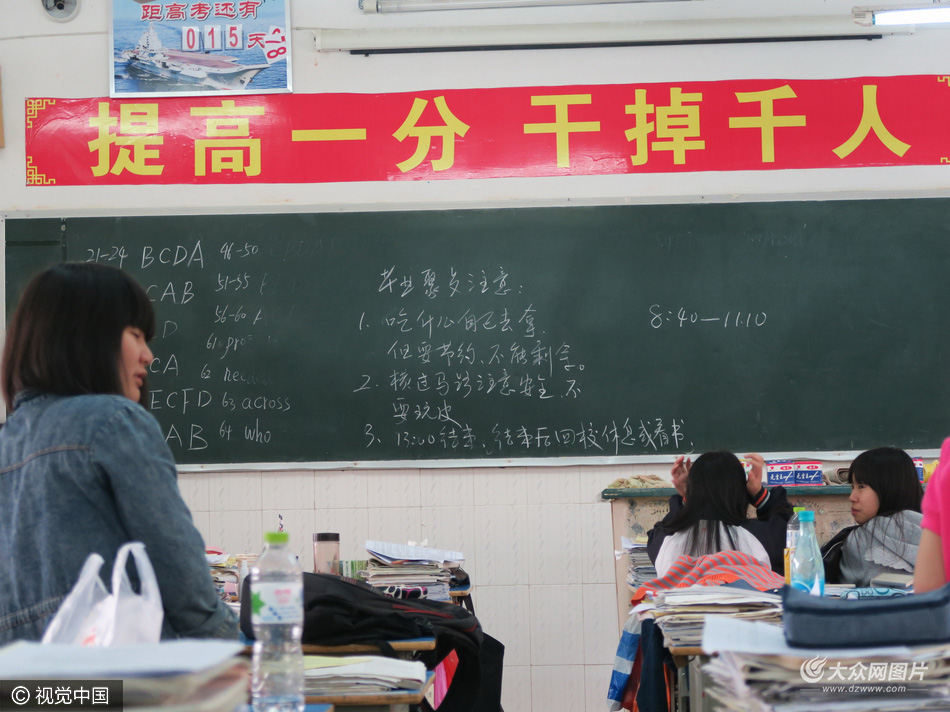 距高考还有
015天
提高一分 干掉千人
21-24 BCDA 46-50
CAB 51-55
D 56-60
61 pro
CA 62 need
ECFD 63 across
AB 64 who
毕业聚餐注意:
1. 吃什么自己去拿,
但要节约,不能剩拿。
2. 横过马路注意安全,不
要玩皮
3. 13:00结束,结束后回校休息或看书.
8:40—11:10
© 视觉中国
大众网图片
www.dzwww.com